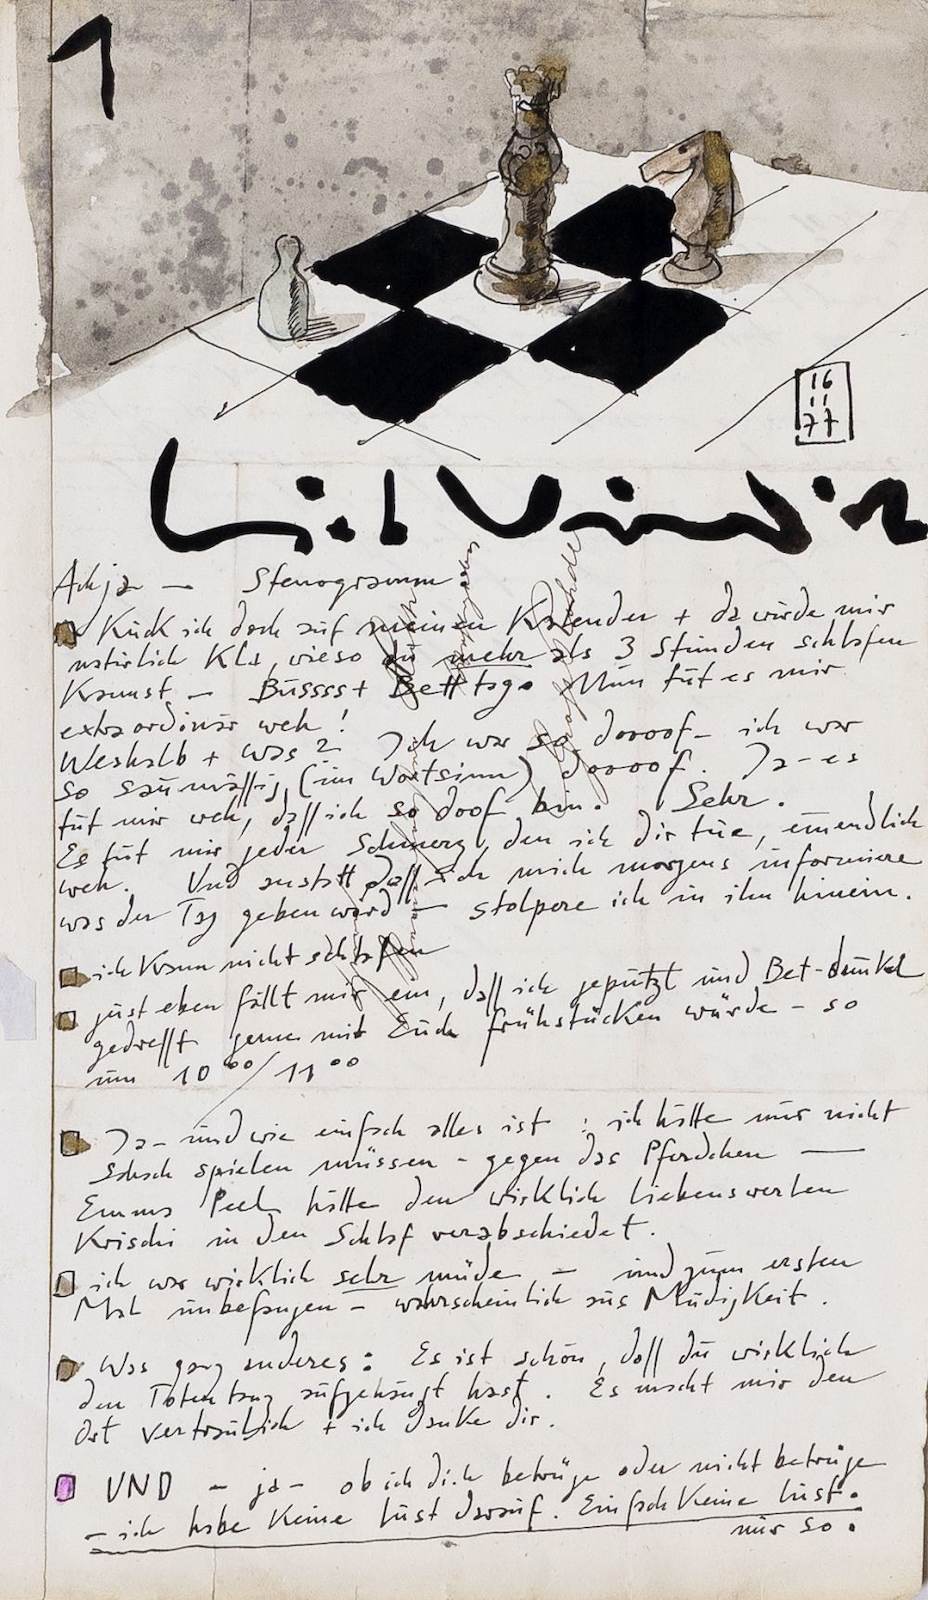 1
16
11
77
Achja — Stenogramm:
Kuck ich doch auf meinen Kalender + da würde mir
natürlich klar, wieso du mehr als 3 Stunden schlafen
kannst — Bussss+ Bettag. Nun tut es mir
extraordinär weh!
Weshalb + was? Ich war so doooof – ich war
so saumässig (im Wortsinn) doooof. Ja – es
tut mir weh, dass ich so doof bin. Sehr.
Es tut mir jeder Schmerz, den ich dir tue, unendlich
weh. Und anstatt dass ich mich morgens informiere
was der Tag geben wird — stolpere ich in ihn hinein.
ich kann nicht schlafen
just eben fällt mir ein, dass ich geputzt und Bet-dunkel
gedresst gerne mit Euch frühstücken würde – so
um 10⁰⁰/11⁰⁰
Ja – und wie einfach alles ist: ich hätte nur nicht
Schach spielen müssen – gegen das Pferdchen —
Emma Peel hätte den wirklich liebenswerten
Krischi in den Schlaf verabschiedet.
ich war wirklich sehr müde – und zum ersten
Mal unbefangen – wahrscheinlich aus Müdigkeit.
Was ganz anderes: Es ist schön, dass du wirklich
den Totentanz aufgehängt hast. Es macht mir den
Ort vertraulich + ich danke dir.
UND – ja – ob ich dich betrüge oder nicht betrüge
– ich habe keine Lust darauf. Einfach keine Lust.
nur so.